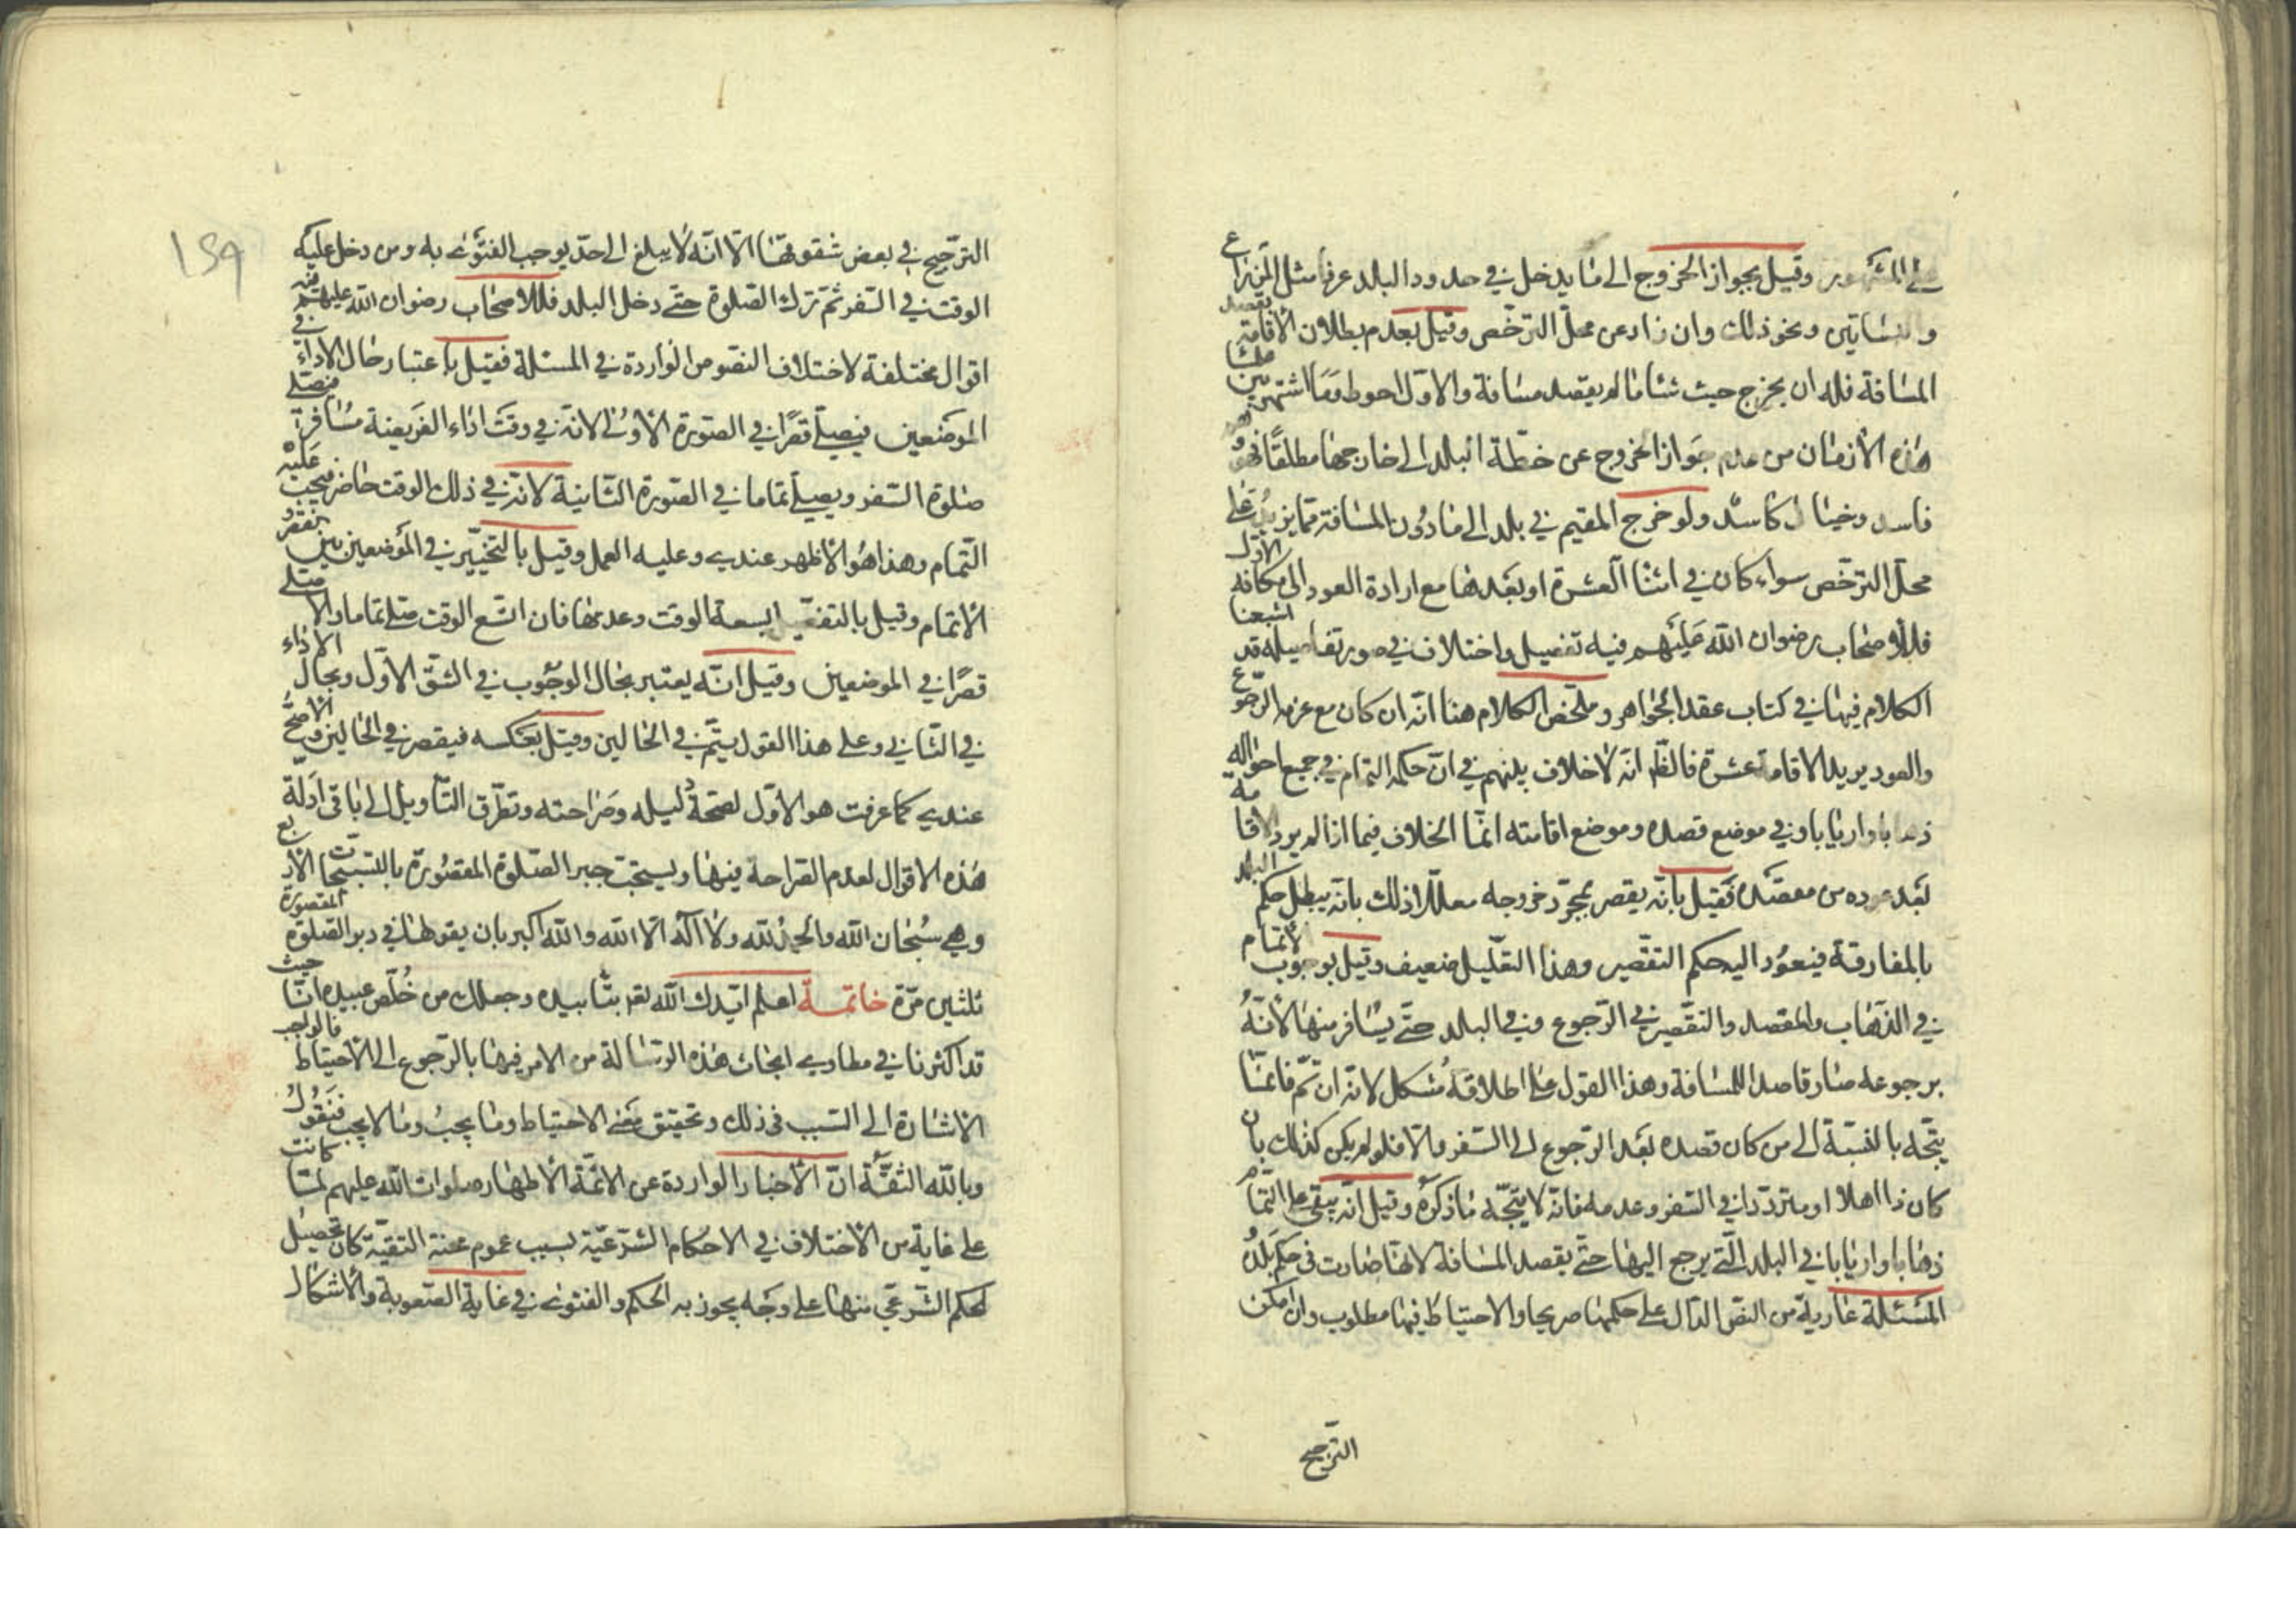 على المشهور وقيل بجواز الخروج الى ما يدخل في حدود البلد عرفا مثل المزارع
والبساتين ونحو ذلك وان زاد عن محل الترخص وقيل بعدم بطلان الاقامة بقصد
المسافة فله ان يخرج حيث شاء ما لم يقصد مسافة والاول احوط وما اشتهر بين
هذه الازمان من عدم جواز الخروج عن خطة البلد الى خارجها مطلقا فهو
فاسد وخيال كاسد ولو خرج المقيم في بلد الى ما دون المسافة مما يزيد على
محل الترخص سواء كان في اثناء العشرة او بعدها مع ارادة العود الى مكانه الاول
فللاصحاب رضوان الله عليهم فيه تفصيل واختلاف في صور تفاصيله قد اشبعنا
الكلام فيها في كتاب عقد الجواهر وملخص الكلام هنا انه ان كان مع عزم الرجوع
والعود يريد الاقامة عشرة فالظ انه لا خلاف بينهم في ان حكمه التمام في جميع احواله
ذهابا وايابا وفي موضع قصده وموضع اقامته انما الخلاف فيما اذا لم يرد الاقامة
بعد عوده من مقصده فقيل بانه يقصر بمجرد خروجه معللا ذلك بانه يبطل حكم البلد
بالمفارقة فيعود اليه حكم التقصير وهذا التعليل ضعيف وقيل بوجوب الاتمام
في الذهاب والمقصد والتقصير في الرجوع وفي البلد حتى يسافر منها لانه
برجوعه صار قاصدا للمسافة وهذا القول على اطلاقه مشكل لانه ان تم فانما
يتجه بالنسبة الى من كان قصده بعد الرجوع الى السفر والا فلو لم يكن كذلك بان
كان ذاهلا او مترددا في السفر وعدمه فانه لا يتجه ما ذكره وقيل انه يبقى على التمام
ذهابا وايابا في البلد التي يرجع اليها حتى يقصد المسافة لانها صارت في حكم بلده
المسئلة عارية من النص الدال على حكمها صريحا والاحتياط فيها مطلوب وان امكن
الترجيح
١٥٩
الترجيح في بعض شقوقها الا انه لا يبلغ الى حد يوجب الفتوى به ومن دخل عليه
الوقت في السفر ثم ترك الصلوة حتى دخل البلد فللاصحاب رضوان الله عليهم فيه
اقوال مختلفة لاختلاف النصوص الواردة في المسئلة فقيل باعتبار حال الاداء في
الموضعين فيصلي قصرا في الصورة الاولى لانه في وقت اداء الفريضة مسافر فيصلي
صلوة السفر ويصلي تماما في الصورة الثانية لانه في ذلك الوقت حاضر فيجب عليه
التمام وهذا هو الاظهر عندي وعليه العمل وقيل بالتخيير في الموضعين بين القصر و
الاتمام وقيل بالتفصيل بسعة الوقت وعدمها فان اتسع الوقت صلى تماما والا صلى
قصرا في الموضعين وقيل انه يعتبر بحال الوجوب في الشق الاول وبحال الاداء
في الثاني وعلى هذا القول يتم في الحالين وقيل بعكسه فيقصر في الحالين والاصح
عندي كما عرفت هو الاول لصحة دليله وصراحته وتطرق التاويل الى باقي ادلة
هذه الاقوال لعدم الصراحة فيها ويستحب جبر الصلوة المقصورة بالتسبيحات الاربع
وهي سبحان الله والحمد لله ولا اله الا الله والله اكبر بان يقولها في دبر الصلوة المقصورة
ثلثين مرة خاتمة اعلم ايدك الله تعر بتاييده وجعلك من خلص عبيده انا حيث
قد اكثرنا في مطاوي ابحاث هذه الرسالة من الامر فيها بالرجوع الى الاحتياط فالواجب
الاشارة الى السبب في ذلك وتحقيق معنى الاحتياط وما يجب وما لا يجب فنقول
وبالله الثقة ان الاخبار الواردة عن الائمة الاطهار صلوات الله عليهم لما كانت
على غاية من الاختلاف في الاحكام الشرعية بسبب عموم محنة التقية كان تحصيل
الحكم الشرعي منها على وجه يجوز به الحكم والفتوى في غاية الصعوبة والاشكال